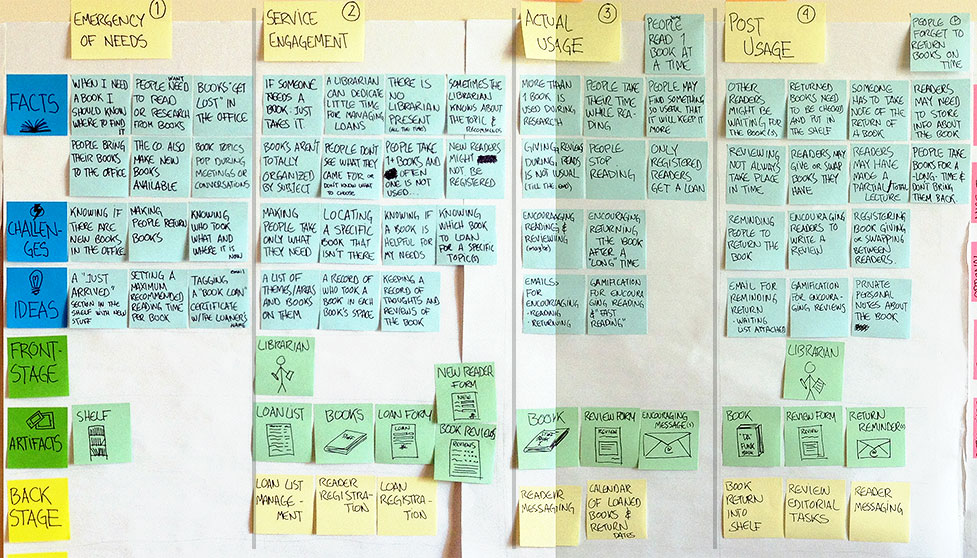 EMERGENCY ①
OF NEEDS
SERVICE ②
ENGAGEMENT
ACTUAL ③
USAGE
PEOPLE
READ 1
BOOK AT
A TIME
POST ④
USAGE
PEOPLE
FORGET TO
RETURN
BOOKS ON
TIME
FACTS
WHEN I NEED
A BOOK I
SHOULD KNOW
WHERE TO FIND
IT
PEOPLE WANT
NEED
TO READ
OR RESEARCH
FROM BOOKS
BOOKS "GET
LOST" IN
THE OFFICE
IF SOMEONE
NEEDS A
BOOK. JUST
TAKES IT.
A LIBRARIAN
CAN DEDICATE
LITTLE TIME
FOR MANAGING
LOANS
THERE IS
NO
LIBRARIAN
PRESENT
(ALL THE TIME)
SOMETIMES THE
LIBRARIAN
KNOWS ABOUT
THE TOPIC &
RECOMMENDS
MORE THAN
1 BOOK IS
USED DURING
RESEARCH
PEOPLE TAKE
THEIR TIME
WHILE REA-
DING
PEOPLE MAY
FIND SOMETHING
SO USEFUL THAT
IT WILL KEEP IT
MORE
OTHER
READERS
MIGHT BE
WAITING FOR
THE BOOK(S)
RETURNED
BOOKS NEED
TO BE CHECKED
AND PUT IN
THE SHELF
SOMEONE
HAS TO TAKE
NOTE OF THE
RETURN OF
A BOOK
READERS
MAY NEED
TO STORE
INFO ABOUT
THE BOOK
PEOPLE BRING
THEIR BOOKS
TO THE OFFICE
THE CO. ALSO
MAKE NEW
BOOKS
AVAILABLE
BOOK TOPICS
POP DURING
MEETINGS OR
CONVERSATIONS
BOOKS AREN'T
TOTALLY
ORGANIZED
BY SUBJECT
PEOPLE DON'T
SEE WHAT THEY
CAME FOR OR
DON'T KNOW WHAT
TO CHOOSE
PEOPLE TAKE
1+ BOOKS AND
OFTEN
ONE IS NOT
USED...
NEW READERS
MIGHT
NOT BE
REGISTERED
GIVING REVIEWS
DURING READS
IS NOT USUAL
(TILL THE END)
PEOPLE
STOP
READING
ONLY
REGISTERED
READERS
GET A LOAN
REVIEWING
NOT ALWAYS
TAKE PLACE
IN TIME.
READERS MAY
GIVE OR SWAP
BOOKS THEY
HAVE
READERS MAY
HAVE
MADE A
PARTIAL/TOTAL
LECTURE
PEOPLE TAKE
BOOKS FOR A
LONG-TIME &
DON'T BRING
THEM BACK
CHALLEN-
GES
KNOWING IF
THERE ARE
NEW BOOKS
IN THE OFFICE
MAKING
PEOPLE RETURN
BOOKS
KNOWING
WHO TOOK
WHAT AND
WHERE IT IS
NOW
MAKING
PEOPLE TAKE
ONLY WHAT
THEY NEED
LOCATING
A SPECIFIC
BOOK THAT
ISN'T THERE
KNOWING IF
A BOOK IS
HELPFUL FOR
MY NEEDS
KNOWING
WHICH BOOK
TO LOAN
FOR A SPECIFIC
TOPIC(S)
ENCOURAGING
READING &
REVIEWING
ENCOURAGING
RETURNING
THE BOOK
AFTER A
"LONG" TIME
REMINDING
PEOPLE TO
RETURN THE
BOOK
ENCOURAGING
READERS TO
WRITE A
REVIEW
REGISTERING
BOOK GIVING
OR SWAPPING
BETWEEN
READERS.
IDEAS
A "JUST
ARRIVED"
SECTION IN THE
SHELF WITH NEW
STUFF
SETTING A
MAXIMUM
RECOMMENDED
READING TIME
PER BOOK
TAGGING
A "BOOK LOAN"
CERTIFICATE
W/THE LOANER'S
NAME
EMAIL
A LIST OF
THEMES/AREAS
AND BOOKS
ON THEM
A RECORD OF
WHO TOOK A
BOOK IN EACH
BOOK'S SPACE
KEEPING A
RECORD OF
THOUGHTS AND
REVIEWS OF
THE BOOK
EMAILS
FOR
ENCOURAGING
- READING
- RETURNING
GAMIFICATION
FOR ENCOURA-
GING READING
& "FAST
READING"
EMAIL FOR
REMINDING
RETURN
- WAITING
LIST ATTACHED
GAMIFICATION
FOR ENCOURA-
GING REVIEWS
PRIVATE
PERSONAL
NOTES ABOUT
THE BOOK
FRONT-
STAGE
LIBRARIAN
NEW READER
FORM
NEW
LIBRARIAN
ARTIFACTS
SHELF
LOAN LIST
BOOKS
LOAN FORM
LOAN
BOOK REVIEWS
REVIEWS
BOOK
REVIEW FORM
REVIEW
ENCOURAGING
MESSAGE(S)
BOOK
DA'
FUNK
BOOK
REVIEW FORM
REVIEW
RETURN
REMINDER(S)
BACK
STAGE
LOAN LIST
MANAGE-
MENT
READER
REGISTRA-
TION
LOAN
REGISTRA-
TION
READER
MESSAGING
CALENDAR
OF LOANED
BOOKS &
RETURN
DATES
BOOK
RETURN
INTO
SHELF
REVIEW
EDITORIAL
TASKS
READER
MESSAGING